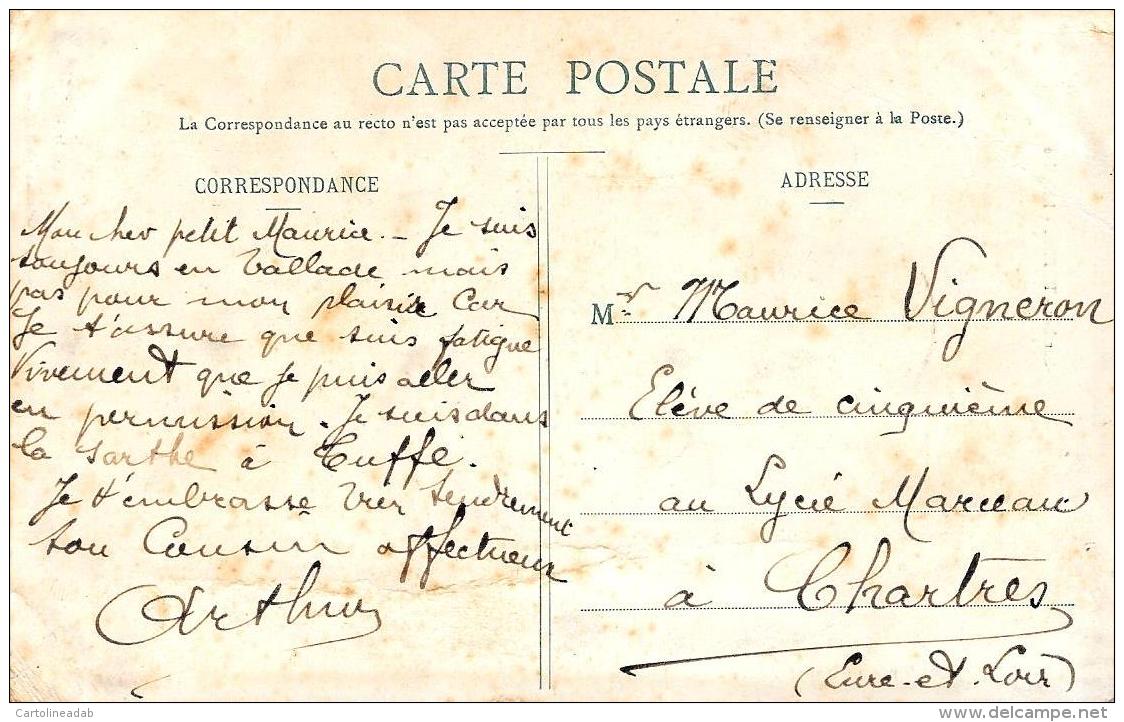 CARTE POSTALE
La Correspondance au recto n'est pas acceptée par tous les pays étrangers. (Se renseigner à la Poste.)
CORRESPONDANCE
Mon cher petit Maurice. _ Je suis
toujours en ballade mais
pas pour mon plaisir car
Je t'assure que suis fatigué
Vivement que je puis aller
en permission. Je suis dans
la Sarthe à Tuffé.
Je t'embrasse bien tendrement
ton Cousin affectueux
Arthur
ADRESSE
Mr Maurice Vigneron
Elève de cinquième
au Lycée Marceau
à Chartres
(Eure-et-Loir)
Cartolineadab
www.delcampe.net